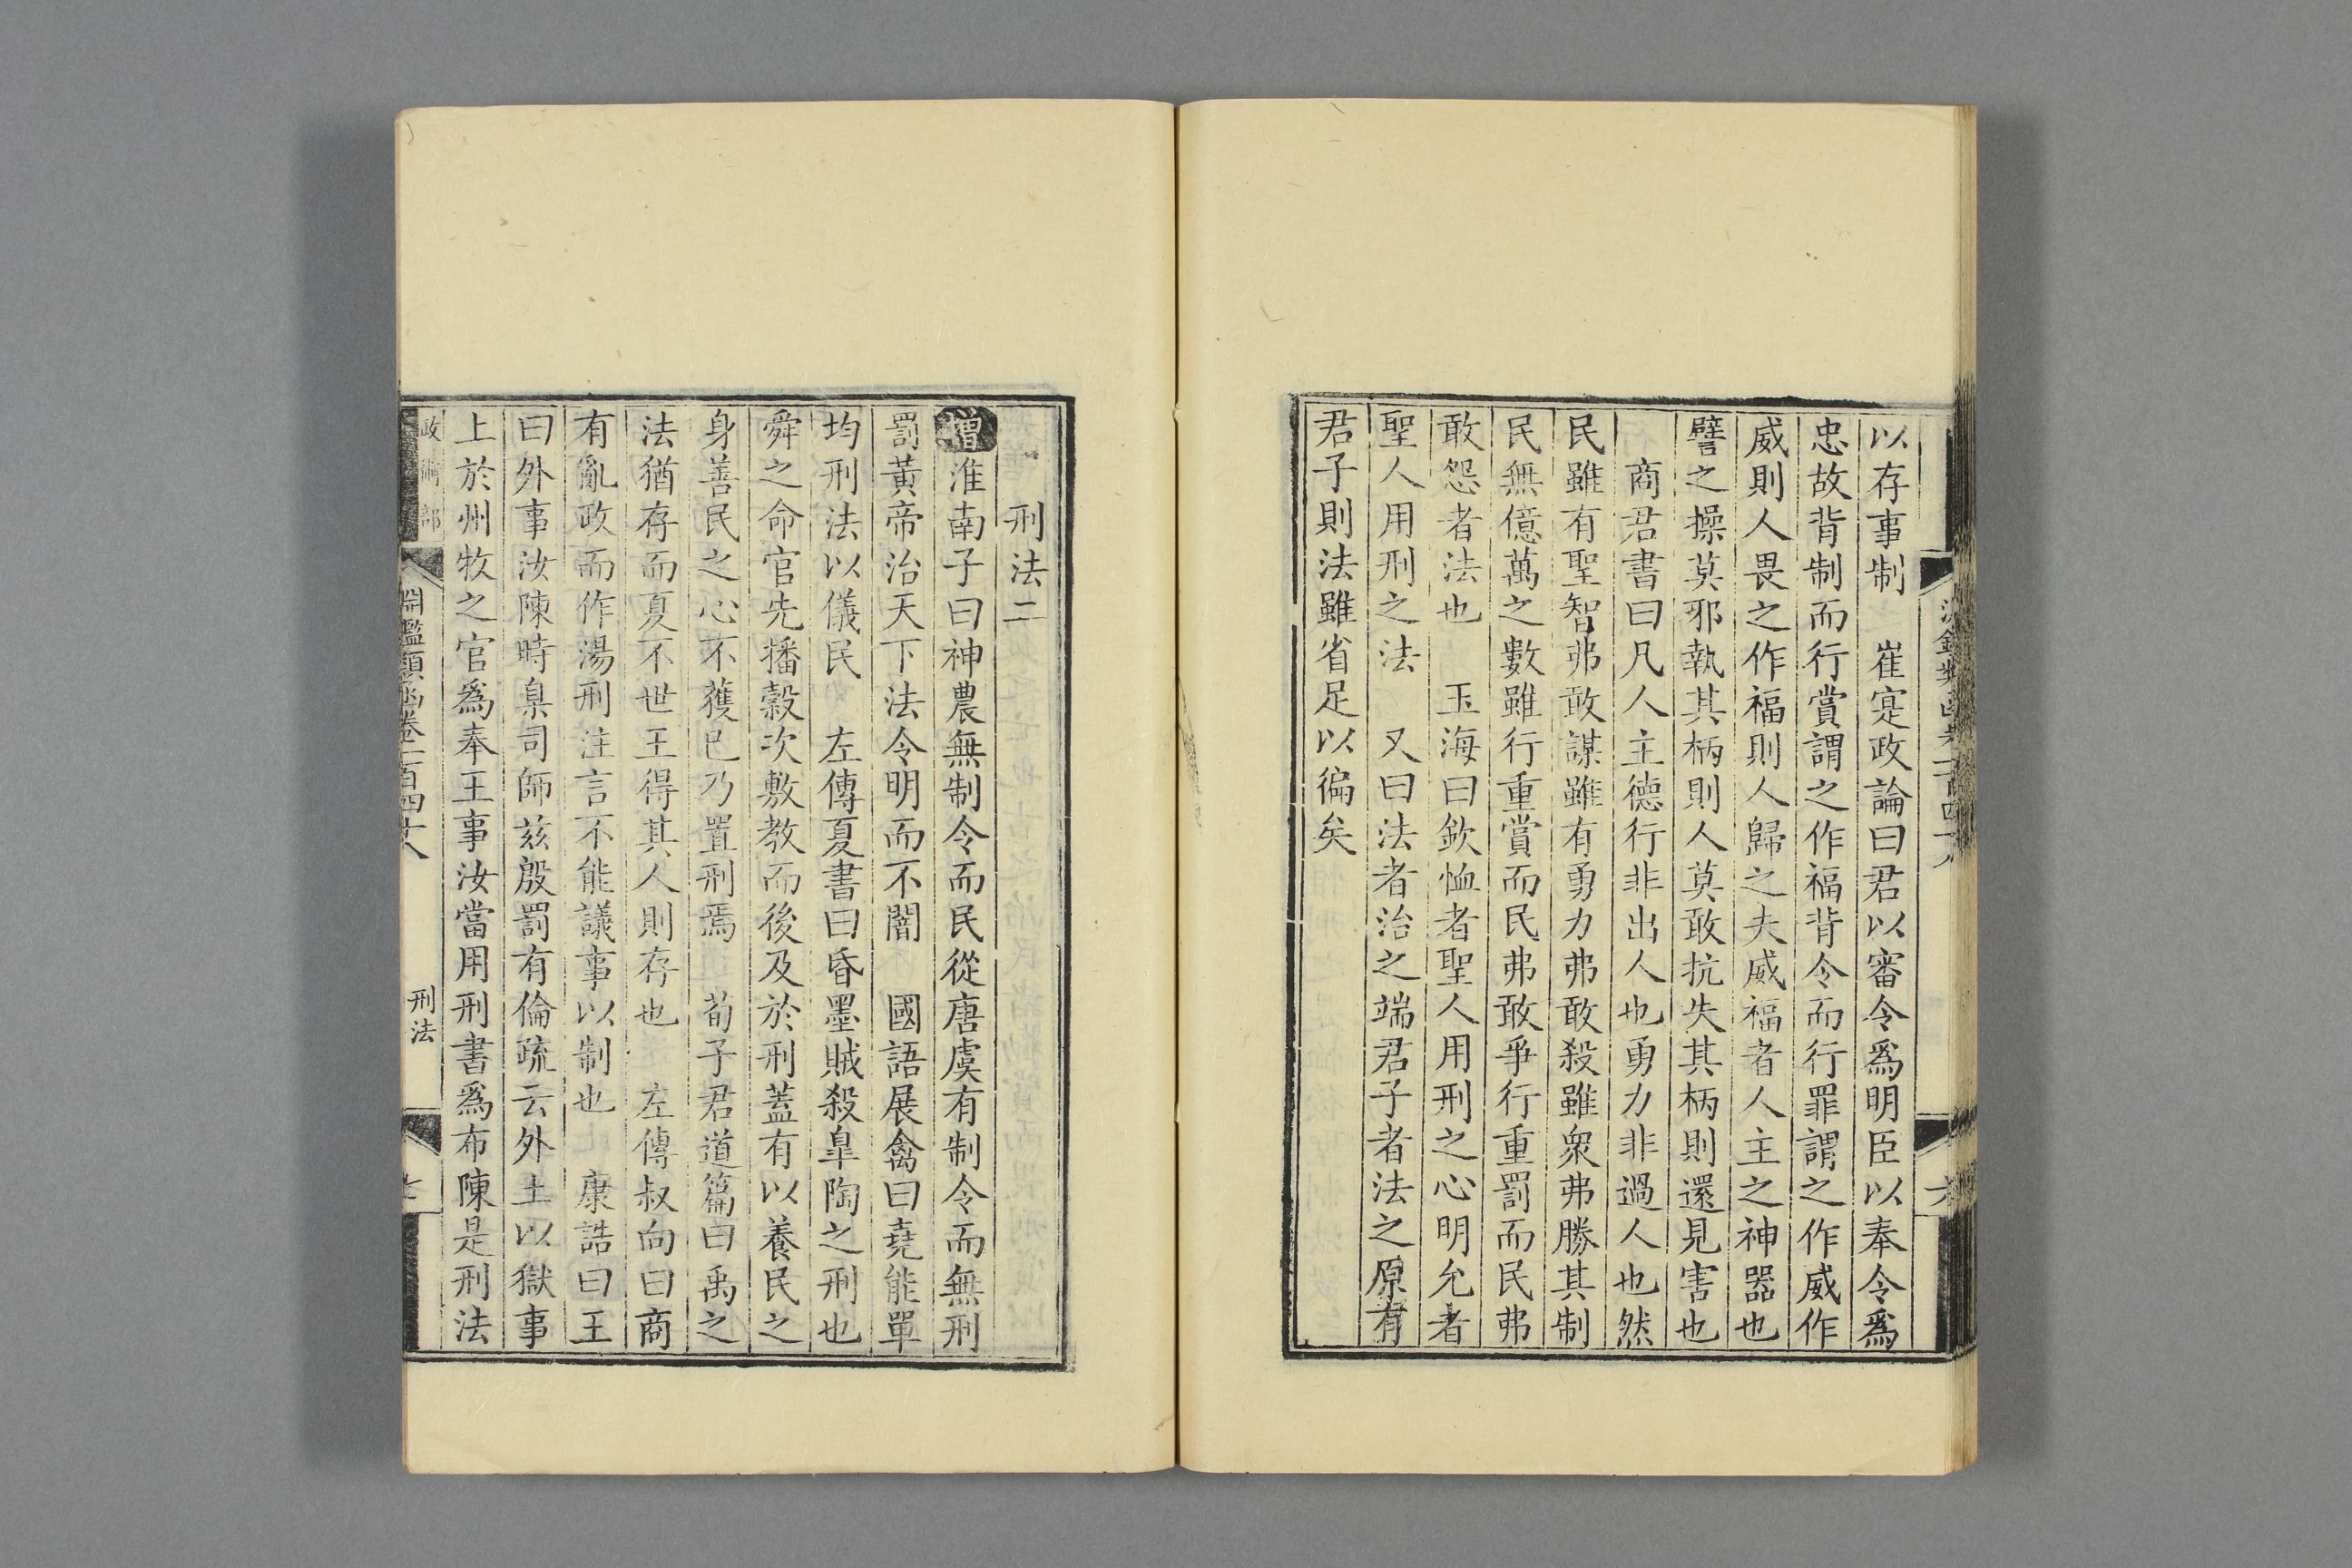 以存事制　崔寔政論曰君以審令爲明臣以奉令爲
忠故背制而行賞謂之作福背令而行罪謂之作威作
威則人畏之作福則人歸之夫威福者人主之神器也
譬之操莫邪執其柄則人莫敢抗失其柄則還見害也
商君書曰凡人主德行非出人也勇力非過人也然
民雖有聖智弗敢謀雖有勇力弗敢殺雖衆弗勝其制
民無億萬之數雖行重賞而民弗敢爭行重罰而民弗
敢怨者法也　玉海曰欽恤者聖人用刑之心明允者
聖人用刑之法　又曰法者治之端君子者法之原有
君子則法雖省足以徧矣
刑法二
增淮南子曰神農無制令而民從唐虞有制令而無刑
罰黃帝治天下法令明而不闇　國語展禽曰堯能單
均刑法以儀民　左傳夏書曰昏墨賊殺臯陶之刑也
舜之命官先播穀次敷教而後及於刑蓋有以養民之
身善民之心不獲已乃置刑焉　荀子君道篇曰禹之
法猶存而夏不世王得其人則存也　左傳叔向曰商
有亂政而作湯刑注言不能議事以制也　康誥曰王
曰外事汝陳時臬司師茲殷罰有倫疏云外土以獄事
上於州牧之官爲奉王事汝當用刑書爲布陳是刑法
政術部
淵鑑類函卷一百四十八
刑法
七